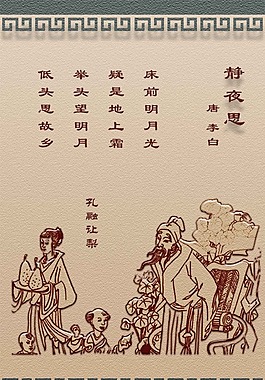 静夜思
唐 李白
床前明月光
疑是地上霜
举头望明月
低头思故乡
孔融让梨